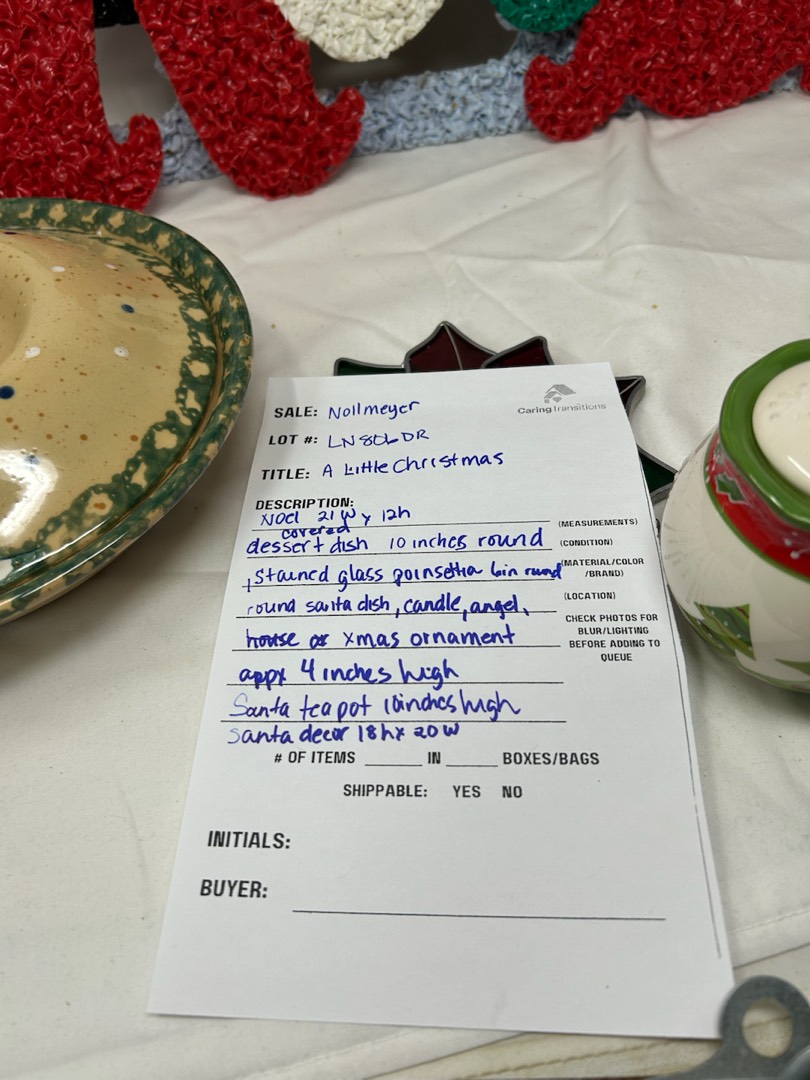 SALE: Nollmeyer
Caring Transitions
LOT #: LN806DR
TITLE: A Little Christmas
DESCRIPTION:
Noel 21W x 12h
(MEASUREMENTS)
covered
dessert dish 10 inches round
(CONDITION)
, Stained glass poinsettia 6in round
(MATERIAL/COLOR
/BRAND)
round santa dish, candle, angel,
(LOCATION)
house or xmas ornament
CHECK PHOTOS FOR
BLUR/LIGHTING
BEFORE ADDING TO
QUEUE
appx 4 inches high
Santa teapot 10inches high
Santa decor 18h x 20W
# OF ITEMS ______ IN ______ BOXES/BAGS
SHIPPABLE: YES NO
INITIALS:
BUYER: